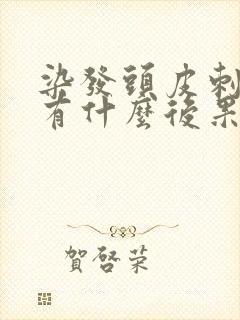 染發頭皮刺
有什麼後果
賀啓荣